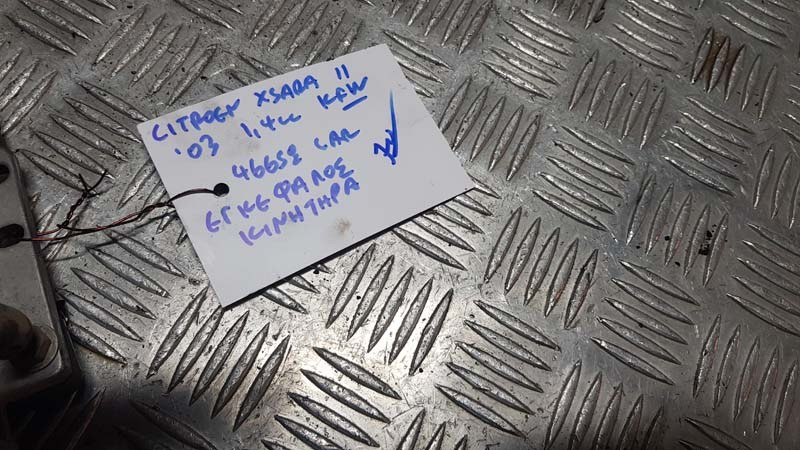 CITROEN XSARA II
'03 1,4cc KFW
ΕΓΚΕΦΑΛΟΣ
ΚΙΝΗΤΗΡΑ